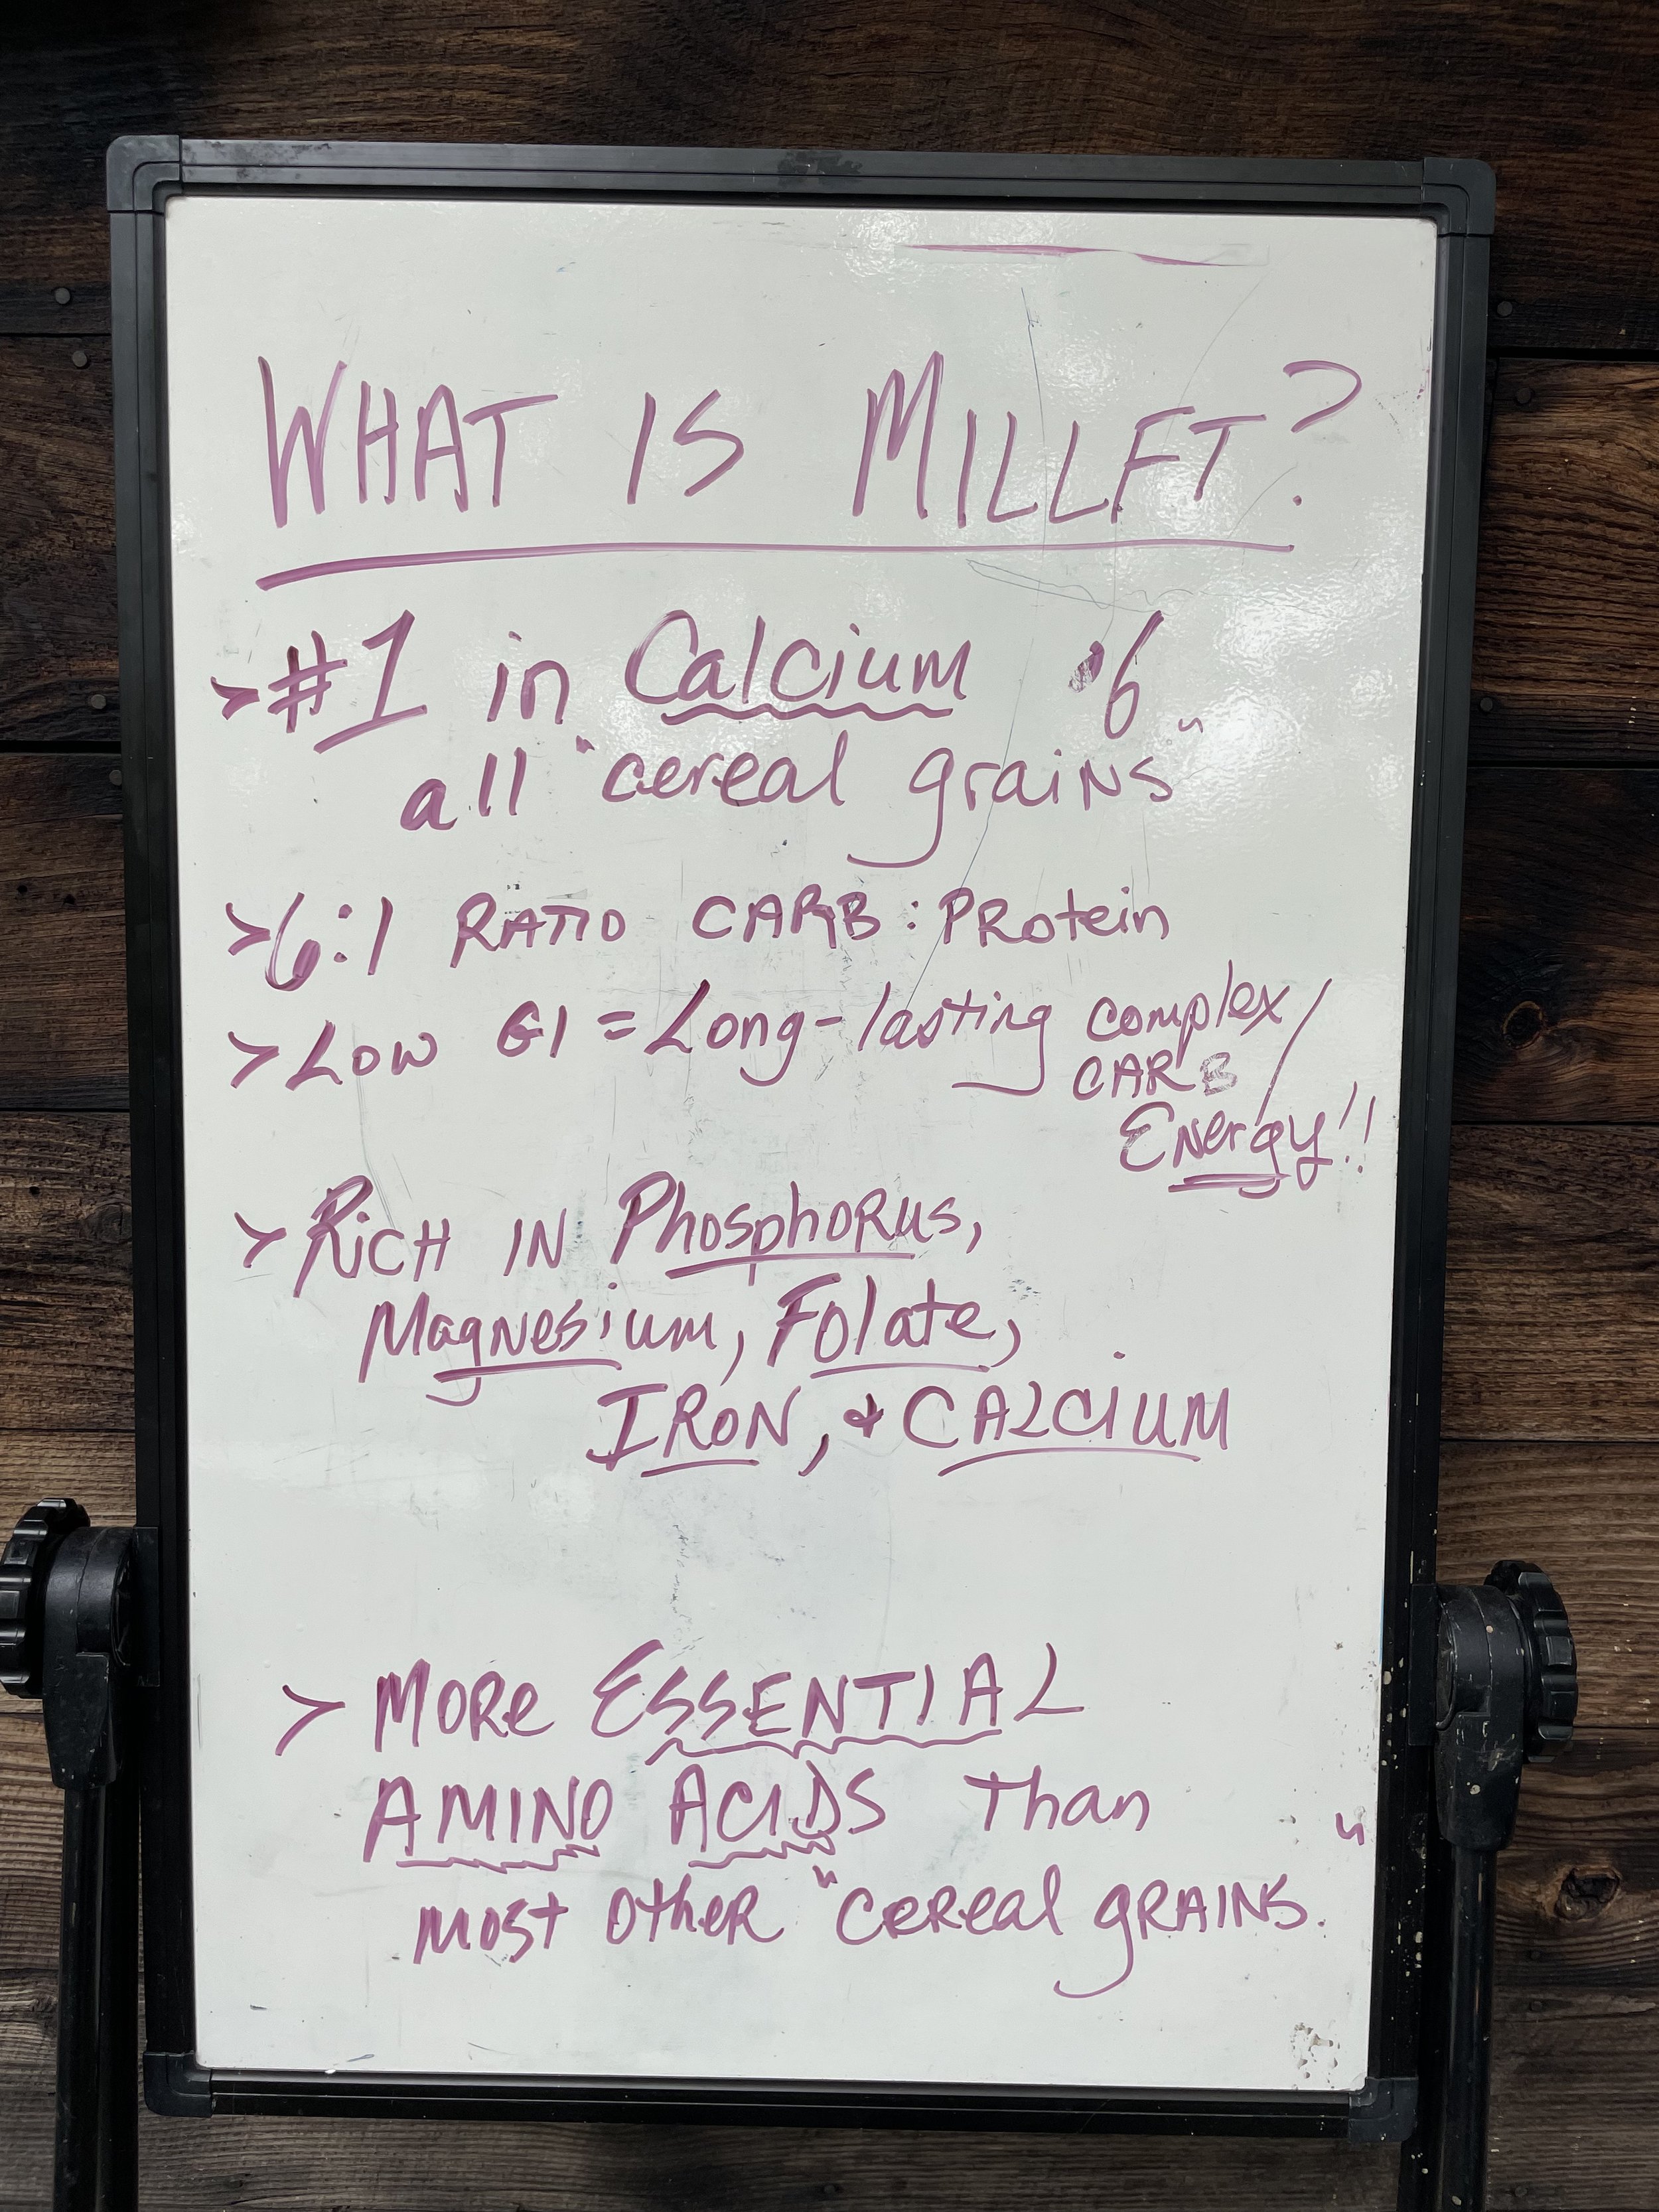 WHAT IS MILLET?
>#1 in Calcium of
all "cereal grains"
>6:1 RATIO CARB: PROtein
>Low GI = Long-lasting complex/
CARB
Energy!!
>RICH IN PhosphoRus,
Magnesium, Folate,
IRON, & CALCIUM
> MORe ESSENTIAL
AMINO ACIDS Than
most otheR "ceReal gRAINS."